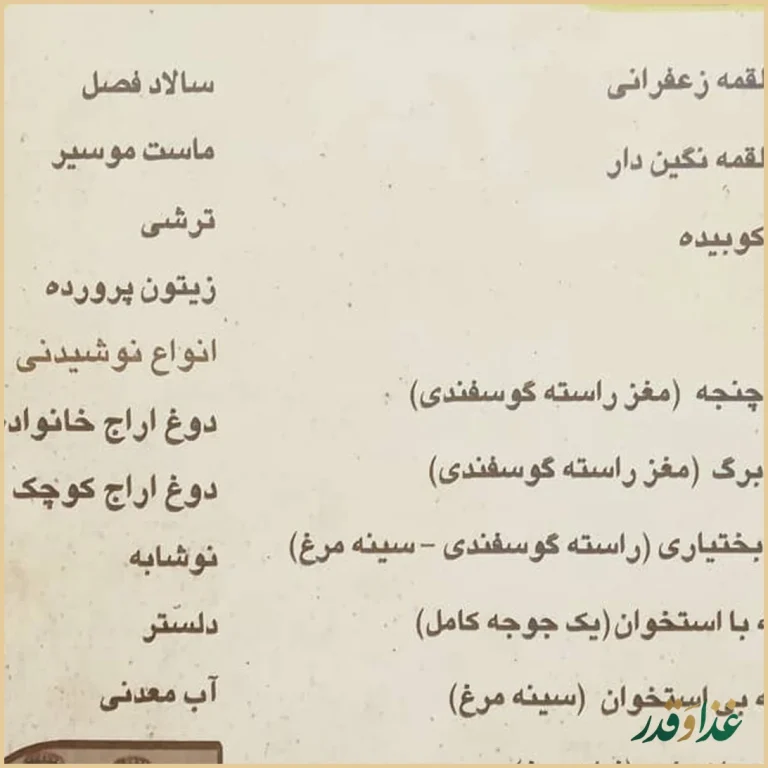 لقمه زعفرانی
لقمه نگین دار
کوبیده
چنجه (مغز راسته گوسفندی)
برگ (مغز راسته گوسفندی)
بختیاری (راسته گوسفندی - سینه مرغ)
ه با استخوان (یک جوجه کامل)
ه بی استخوان (سینه مرغ)
سالاد فصل
ماست موسیر
ترشی
زیتون پرورده
انواع نوشیدنی
دوغ اراج خانواد
دوغ اراج کوچک
نوشابه
دلستر
آب معدنی
غذا و قدر